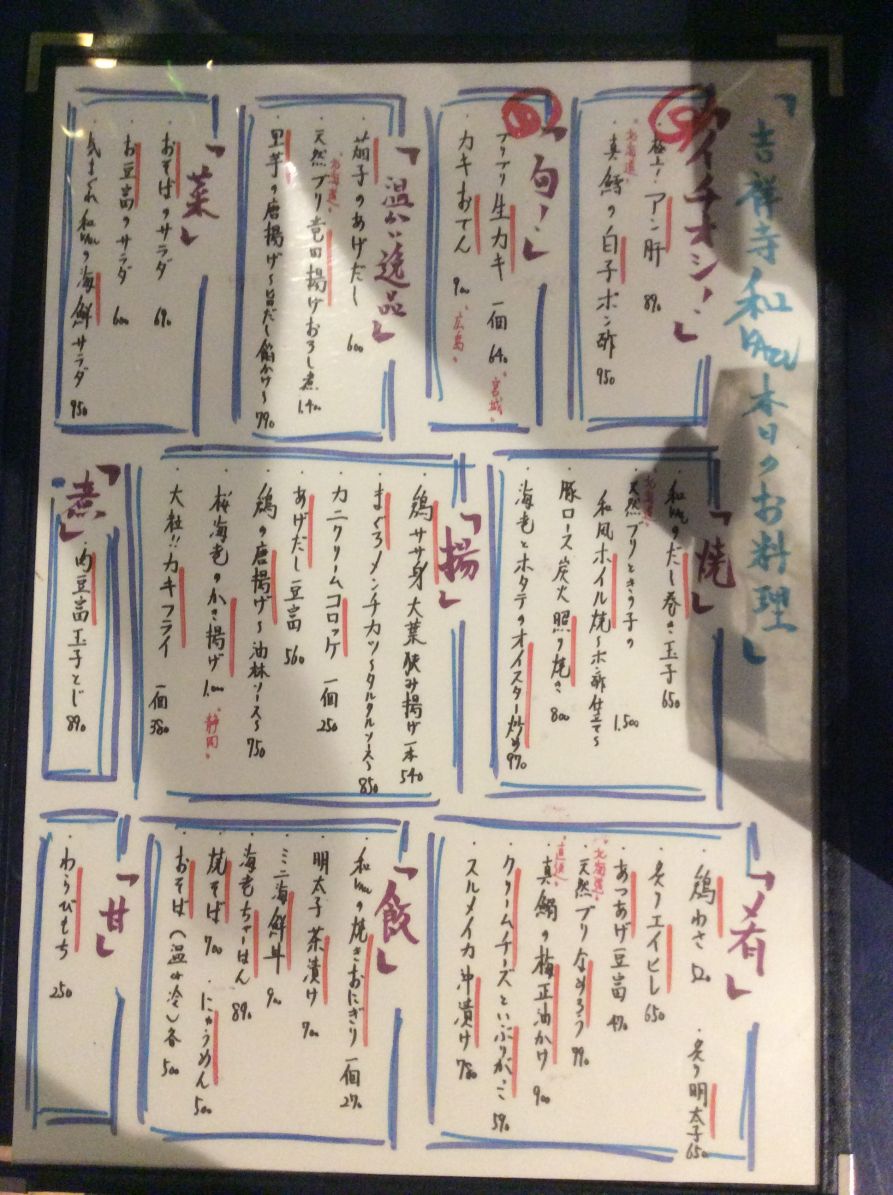 「吉祥寺 和 本日のお料理」
「イチオシ！」
・極上！アン肝 890
北海道
・真鱈の白子ポン酢 950
「旬！」
・プリプリ生カキ 一個 640 宮城
・カキおでん 900 広島
「温かい逸品」
・茄子のあげだし 600
北海道
・天然ブリ竜田揚げおろし煮 1.400
・里芋の唐揚げ〜旨だし餡かけ〜 790
「菜」
・おそばのサラダ 690
・お豆富のサラダ 600
・気まぐれ和の海鮮サラダ 950
「焼」
・和のだし巻き玉子 650
北海道
・天然ブリときの子の
和風ホイル焼〜ポン酢仕立て〜 1.500
・豚ロース炭火照り焼き 800
・海老とホタテのオイスター炒め 970
「揚」
・鶏ササ身大葉挟み揚げ 一本 540
・まぐろメンチカツ〜タルタルソース〜 850
・カニクリームコロッケ 一個 250
・あげだし豆富 560
・鶏の唐揚げ〜油林ソース〜 750
・桜海老のかき揚げ 1.000 静岡
・大粒!!カキフライ 一個 380
「煮」
・肉豆富玉子とじ 890
「〆肴」
・鶏わさ
・炙り明太子 650
・炙りエイヒレ 650
・あつあげ豆富 490
北海道
・天然ブリなめろう 990
・真鯛の梅正油かけ 900
・クリームチーズといぶりがっこ 590
・スルメイカ沖漬け 780
「飯」
・和の焼きおにぎり 一個 270
・明太子茶漬け 700
・ミニ海鮮丼 900
・海老ちゃーはん 890
・焼そば 700
・にゅうめん 500
・おそば（温or冷）各 500
「甘」
・わらびもち 250